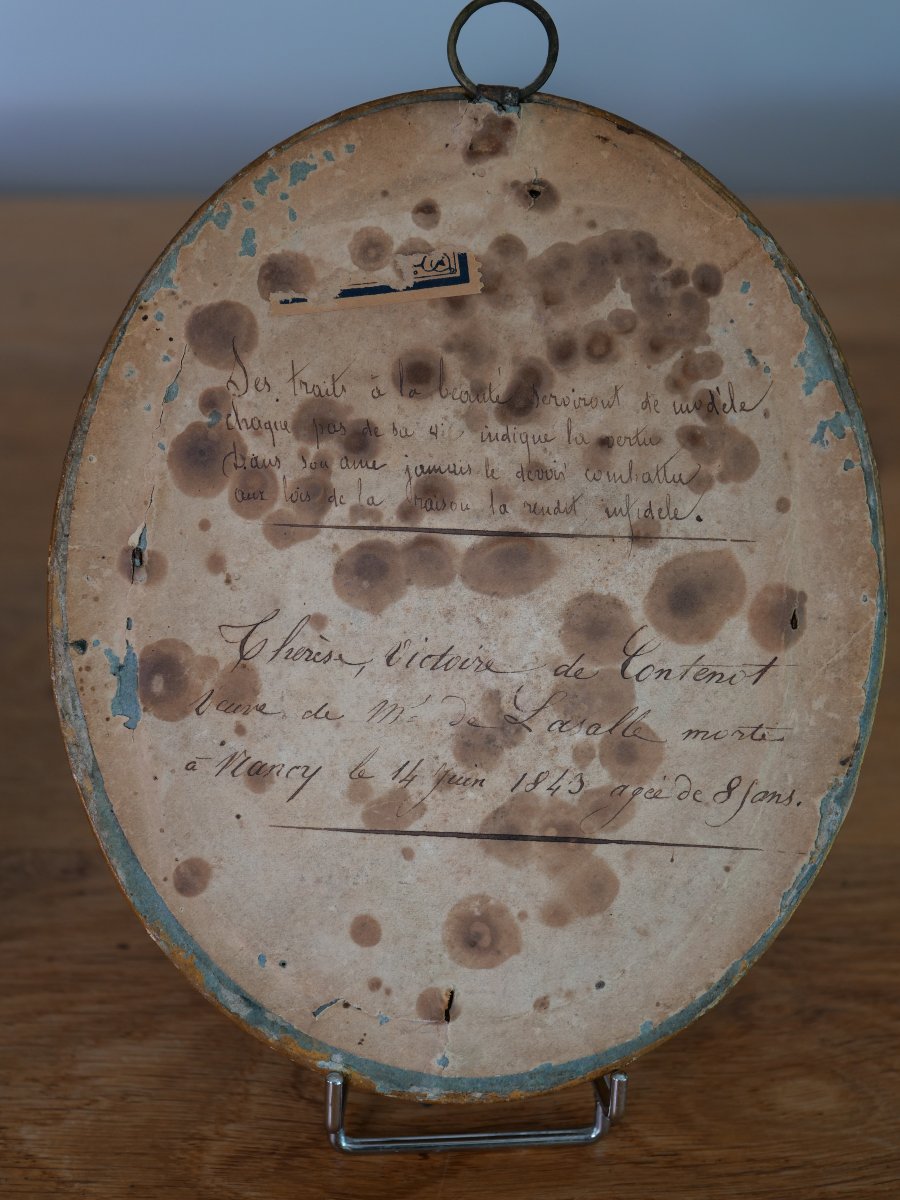 Ses traits à la beauté serviront de modèle
chaque pas de sa vie indique la vertu
Dans son ame jamais le devoir combattu
aux lois de la raison la rendit infidele.
Thérèse, Victoire de Contenot
Veuve de Mr de Lasalle morte
à Nancy le 14 Juin 1843 agée de 81 ans.